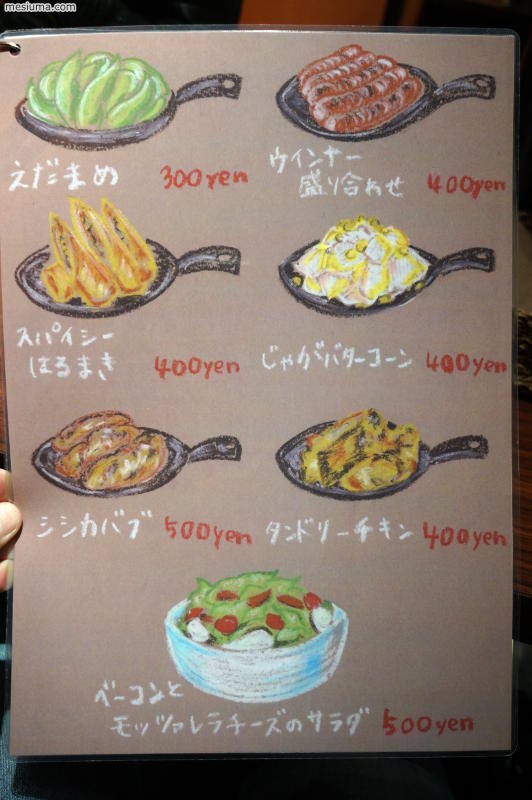 mesiuma.com
えだまめ 300yen
ウインナー
盛り合わせ 400yen
スパイシー
はるまき 400yen
じゃがバターコーン 400yen
シシカバブ 500yen
タンドリーチキン 400yen
ベーコンと
モッツァレラチーズのサラダ 500yen